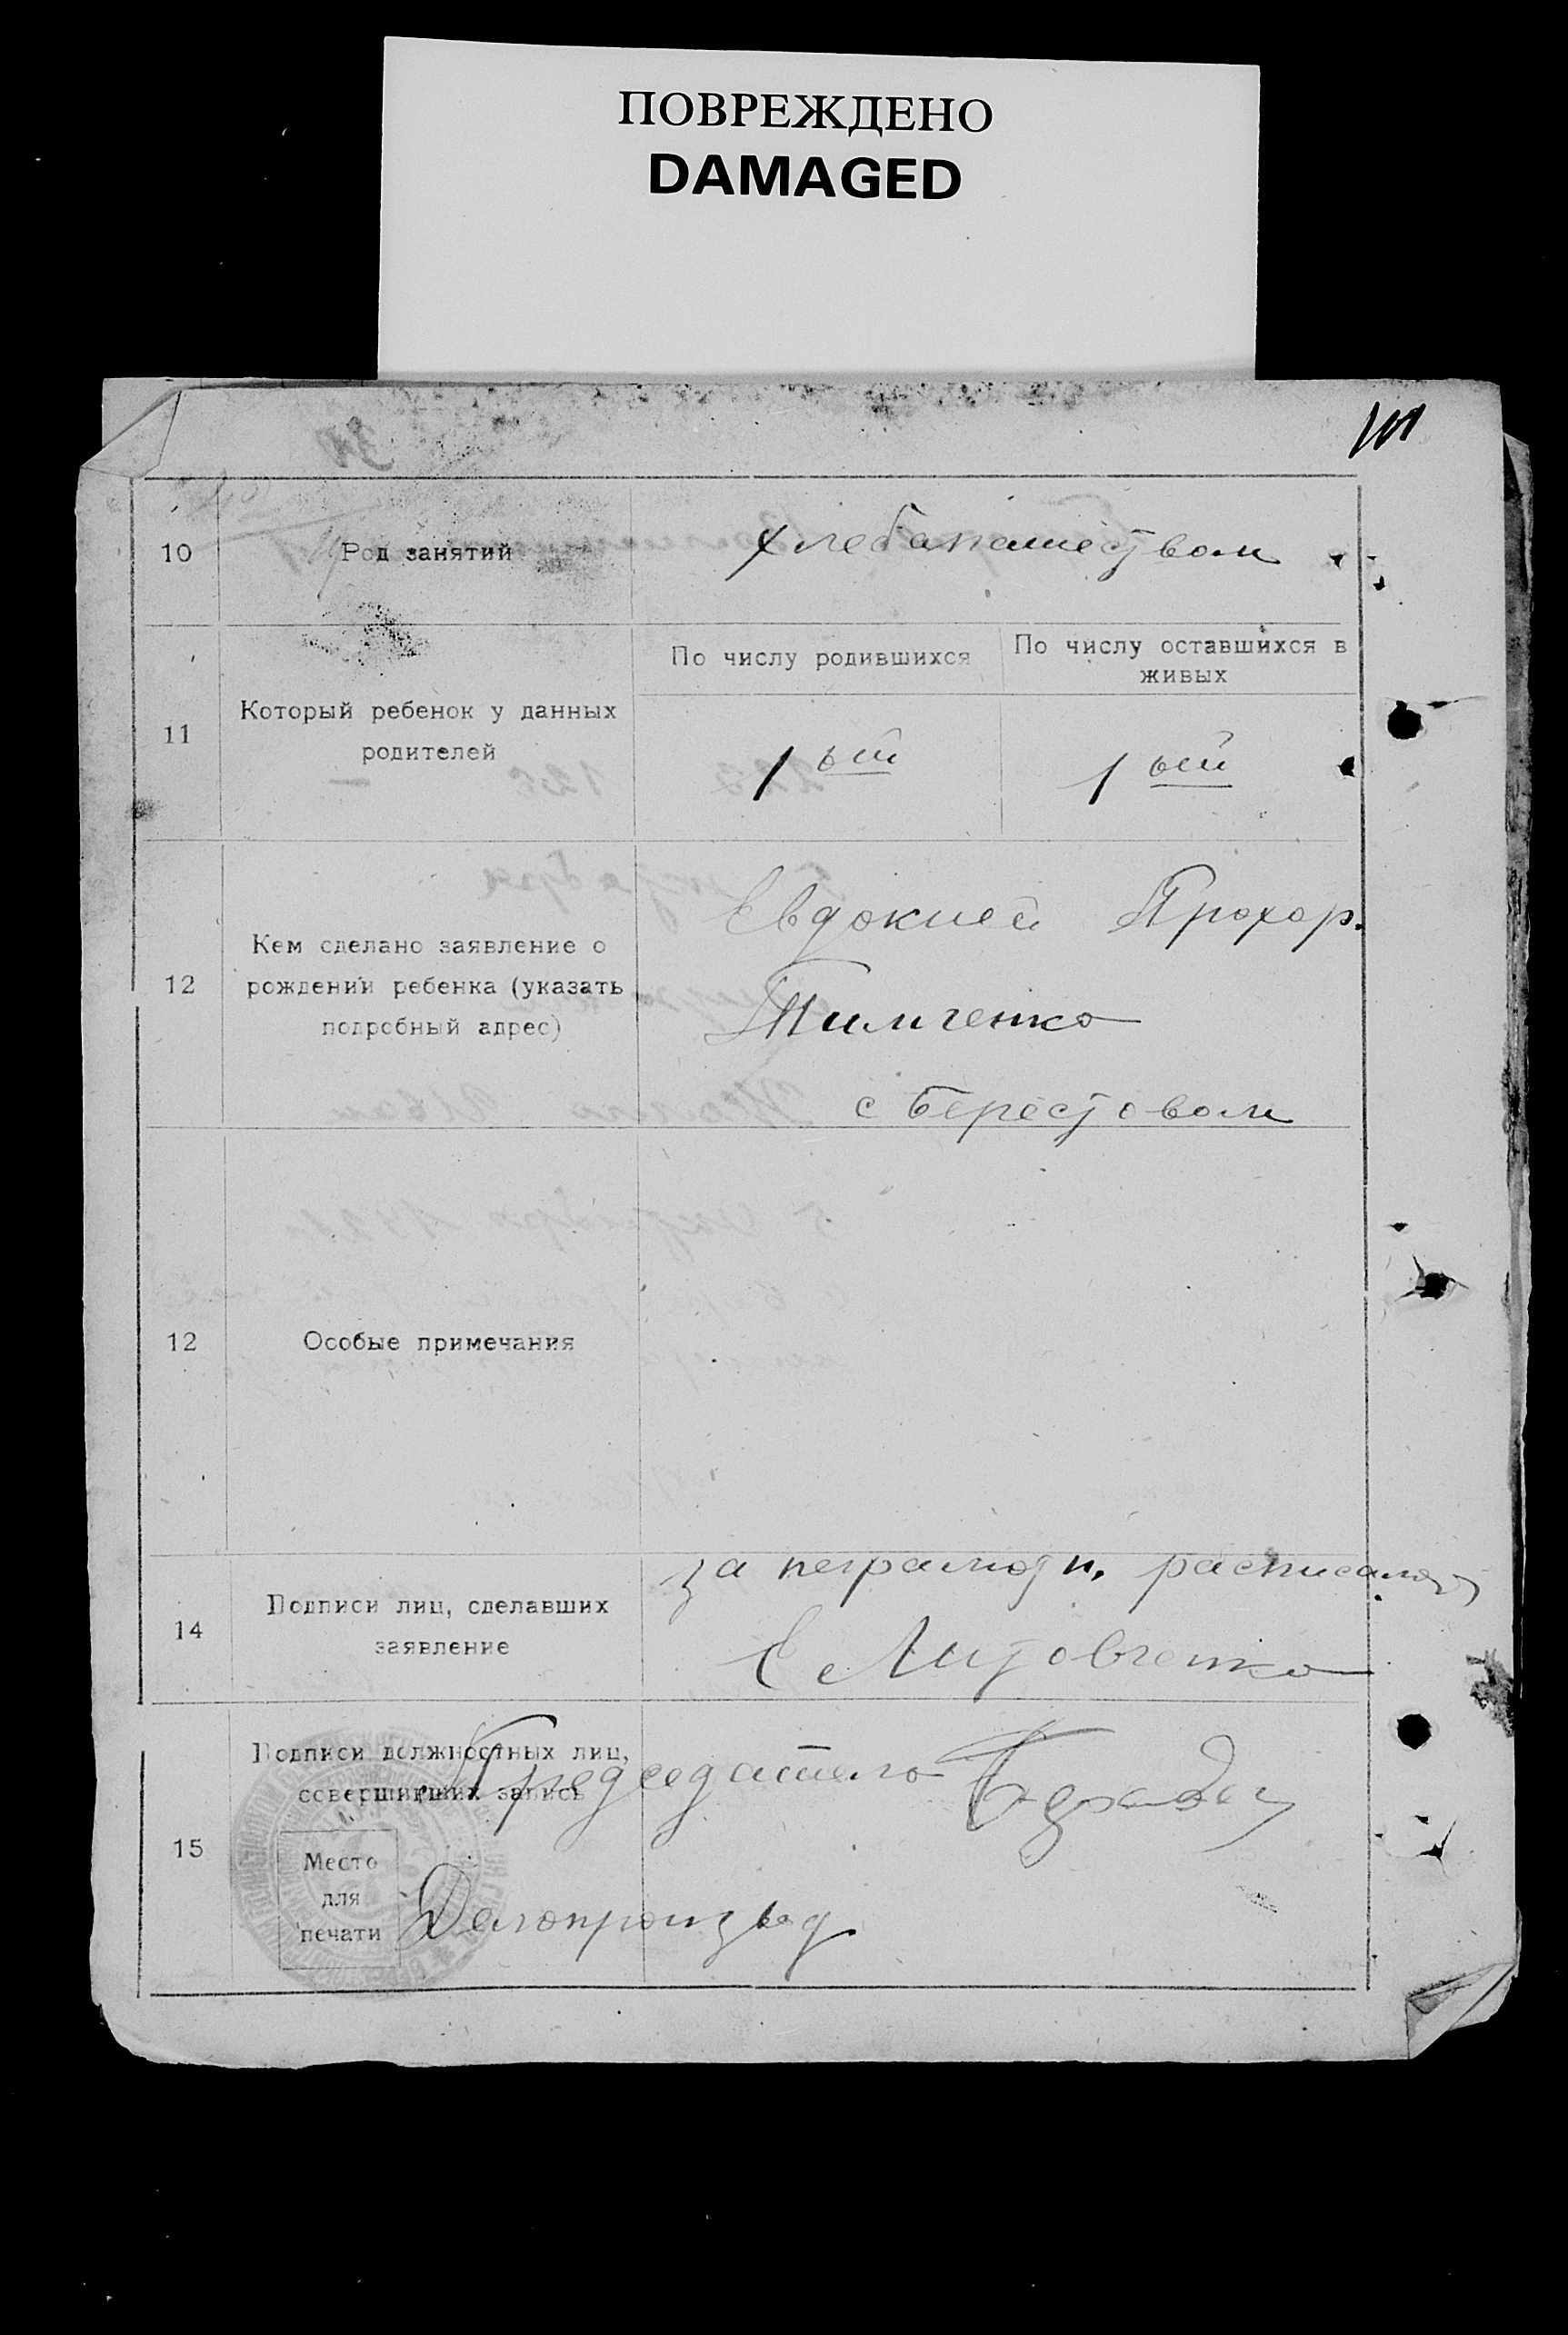 ПОВРЕЖДЕНО
DAMAGED
101
10
Род занятий
Хлебапашеством
11
Который ребенок у данных
родителей
По числу родившихся
По числу оставшихся в
живых
1 ый
1 ый
12
Кем сделано заявление о
рождении ребенка (указать
подробный адрес)
Евдокией Прохор.
Тимченко
с Берестовом
12
Особые примечания
14
Подписи лиц, сделавших
заявление
за неграмотн. расписалась
Е Литовченко
15
Подписи должностных лиц,
совершивших запись
Председатель
Место
для
печати
Делопроизвод